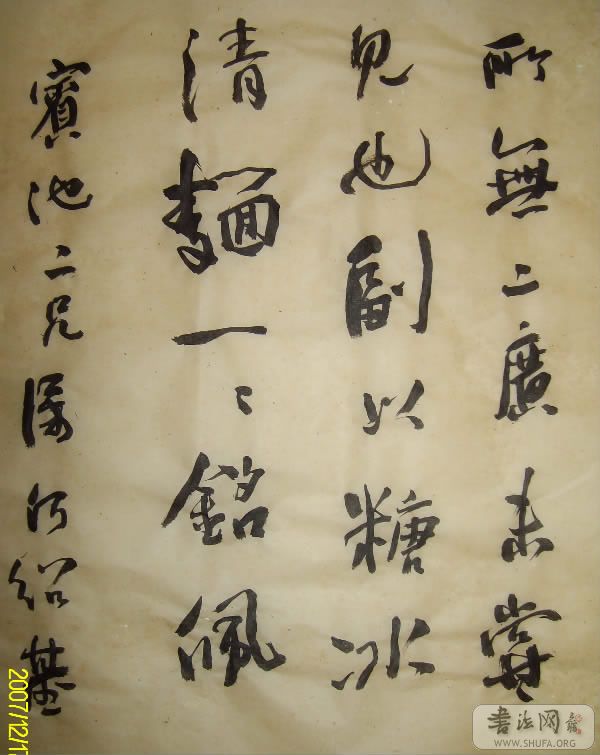 所無二廣未嘗
見也副以糖冰
清麵一〻銘佩
賓池二兄屬何紹基
2007/12/1
書法网
WWW.SHUFA.ORG